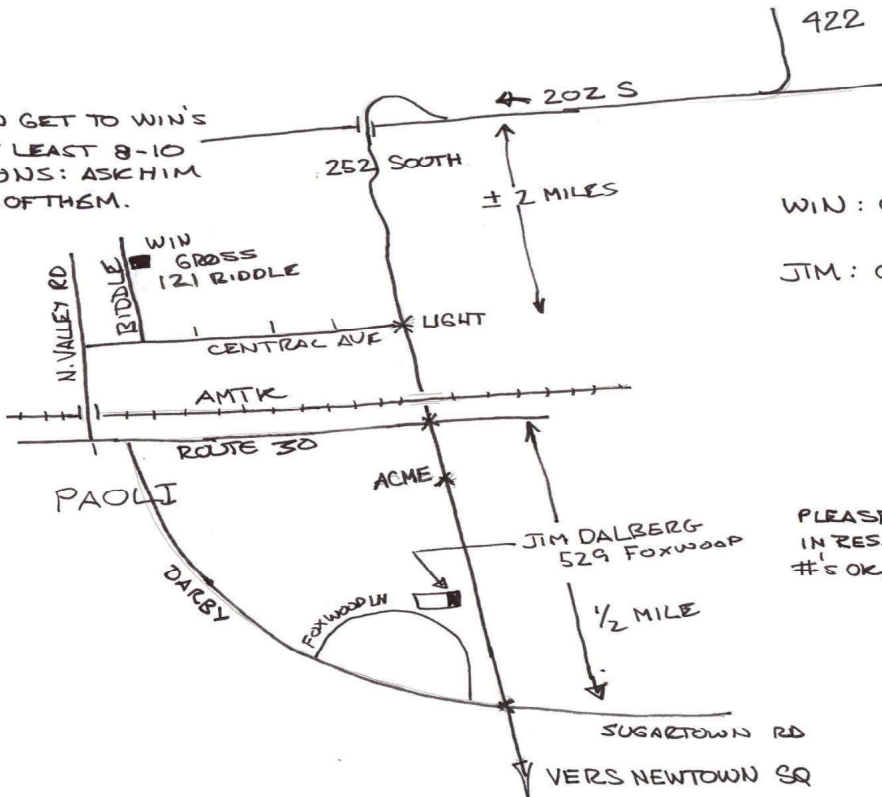 422
← 202 S
GET TO WIN'S
LEAST 8-10
ONS: ASK HIM
OF THEM.
252 SOUTH
± 2 MILES
WIN:
JIM:
WIN
GROSS
121 BIDDLE
N. VALLEY RD
BIDDLE
LIGHT
CENTRAL AVE
AMTK
ROUTE 30
PAOLI
ACME
JIM DALBERG
529 FOXWOOD
PLEASE
IN RES
#'s OK
DARBY
FOXWOOD LN
1/2 MILE
SUGARTOWN RD
VERS NEWTOWN SQ